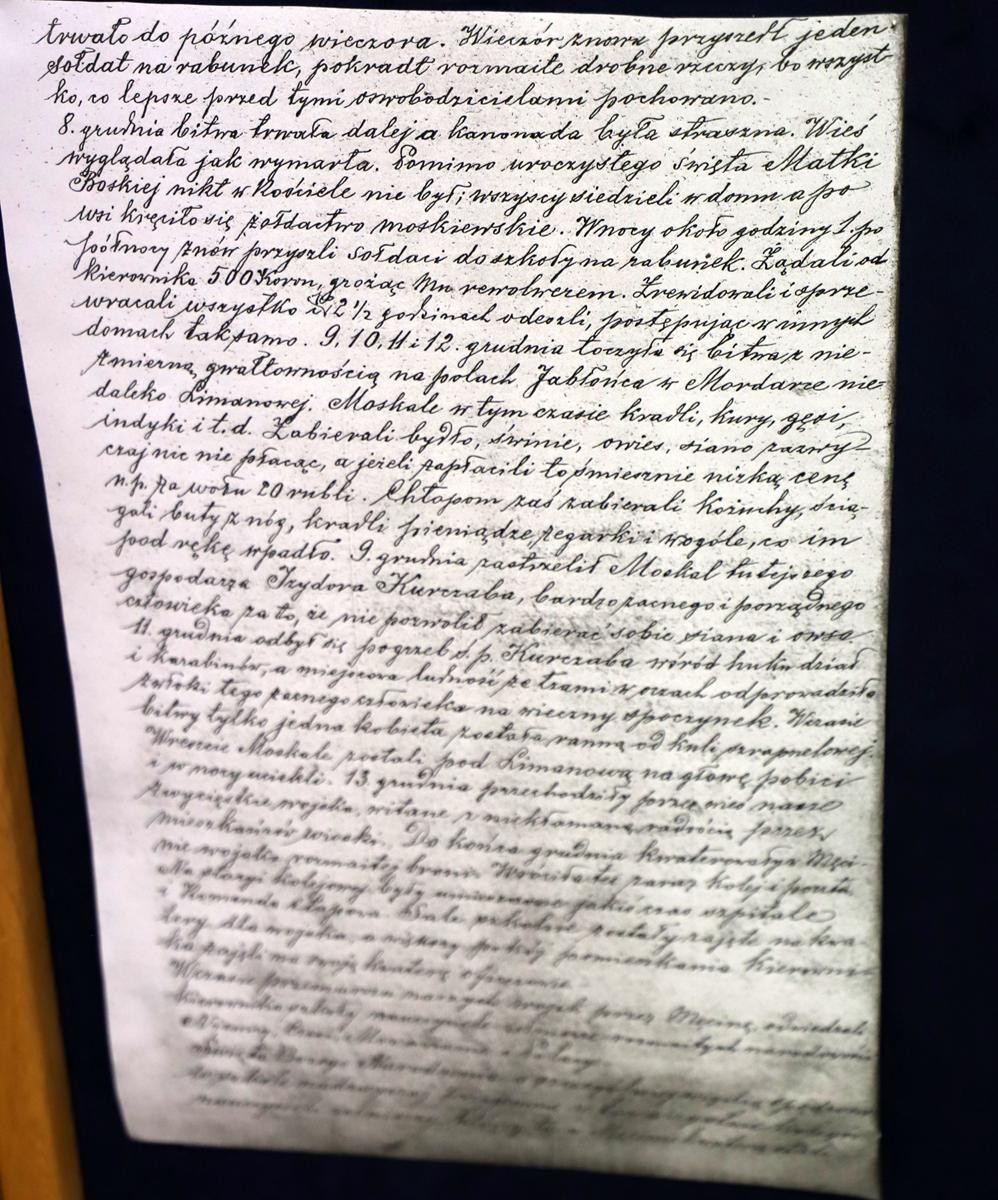 trwało do późnego wieczora. Wieczór znowu przyszedł jeden
sołdat na rabunek, pokradł rozmaite drobne rzeczy, bo wszyst-
ko, co lepsze przed tymi oswobodzicielami pochowano.-
8. grudnia bitwa trwała dalej a kanonada była straszna. Wieś
wyglądała jak wymarła. Pomimo uroczystego święta Matki
Boskiej nikt w Kościele nie był; wszyscy siedzieli w domu a po
wsi kręciło się żołdactwo moskiewskie. W nocy około godziny 1. po
północy znów przyszli sołdaci do szkoły na rabunek. Żądali od
kierownika 500 Koron, grożąc Mu rewolwerem. Zrewidowali i sprze-
wracali wszystko i w 2 1/2 godzinach odeszli, postępując w innych
domach tak samo. 9, 10, 11 i 12. grudnia toczyła się bitwa z nie-
zmierną gwałtownością na polach Jabłońca w Mordarze nie-
daleko Limanowej. Moskale w tym czasie kradli, kury, gęsi,
indyki i t. d. Zabierali bydło, świnie, owies, siano zazwy-
czaj nic nie płacąc, a jeżeli zapłacili to śmiesznie nizką cenę
n.p. za wołu 20 rubli. Chłopom zaś zabierali kożuchy, ścią-
gali buty z nóg, kradli pieniądze, zegarki i wogóle, co im
pod rękę wpadło. 9. grudnia zastrzelił Moskal tutejszego
gospodarza Izydora Kurczaba, bardzo zacnego i porządnego
człowieka za to, że nie pozwolił zabierać sobie siana i owsa
11. grudnia odbył się pogrzeb ś.p. Kurczaba wśród huku dział
i karabinów, a miejscowa ludność ze łzami w oczach odprowadziła
zwłoki tego zacnego człowieka na wieczny spoczynek. W czasie
bitwy tylko jedna kobieta została ranną od kuli szrapnelowej.
Wreszcie Moskale zostali pod Limanową na głowę pobici
i w nocy uciekli. 13. grudnia przechodziły przez wieś nasze
zwycięskie wojska, witane z niekłamaną radością przez
mieszkańców wioski. Do końca grudnia kwaterowały w Męci-
nie wojska rozmaitej broni. Wróciła też zaraz kolej i poczta
Na stacyi kolejowej były umieszczone jakiś czas szpitale
i Komenda etapowa. Sale szkolne zostały zajęte na kwa-
tery dla wojska, a pokoje pomieszkania kierowni-
ka zajęli na swoją kwaterę oficerowie.
W czasie przemarszu naszych wojsk przez Męcinę, odwiedzali
kierownika szkoły rozmaitych narodowości
Niemcy, Czesi, Morawianie i Polacy.
Święta Bożego Narodzenia